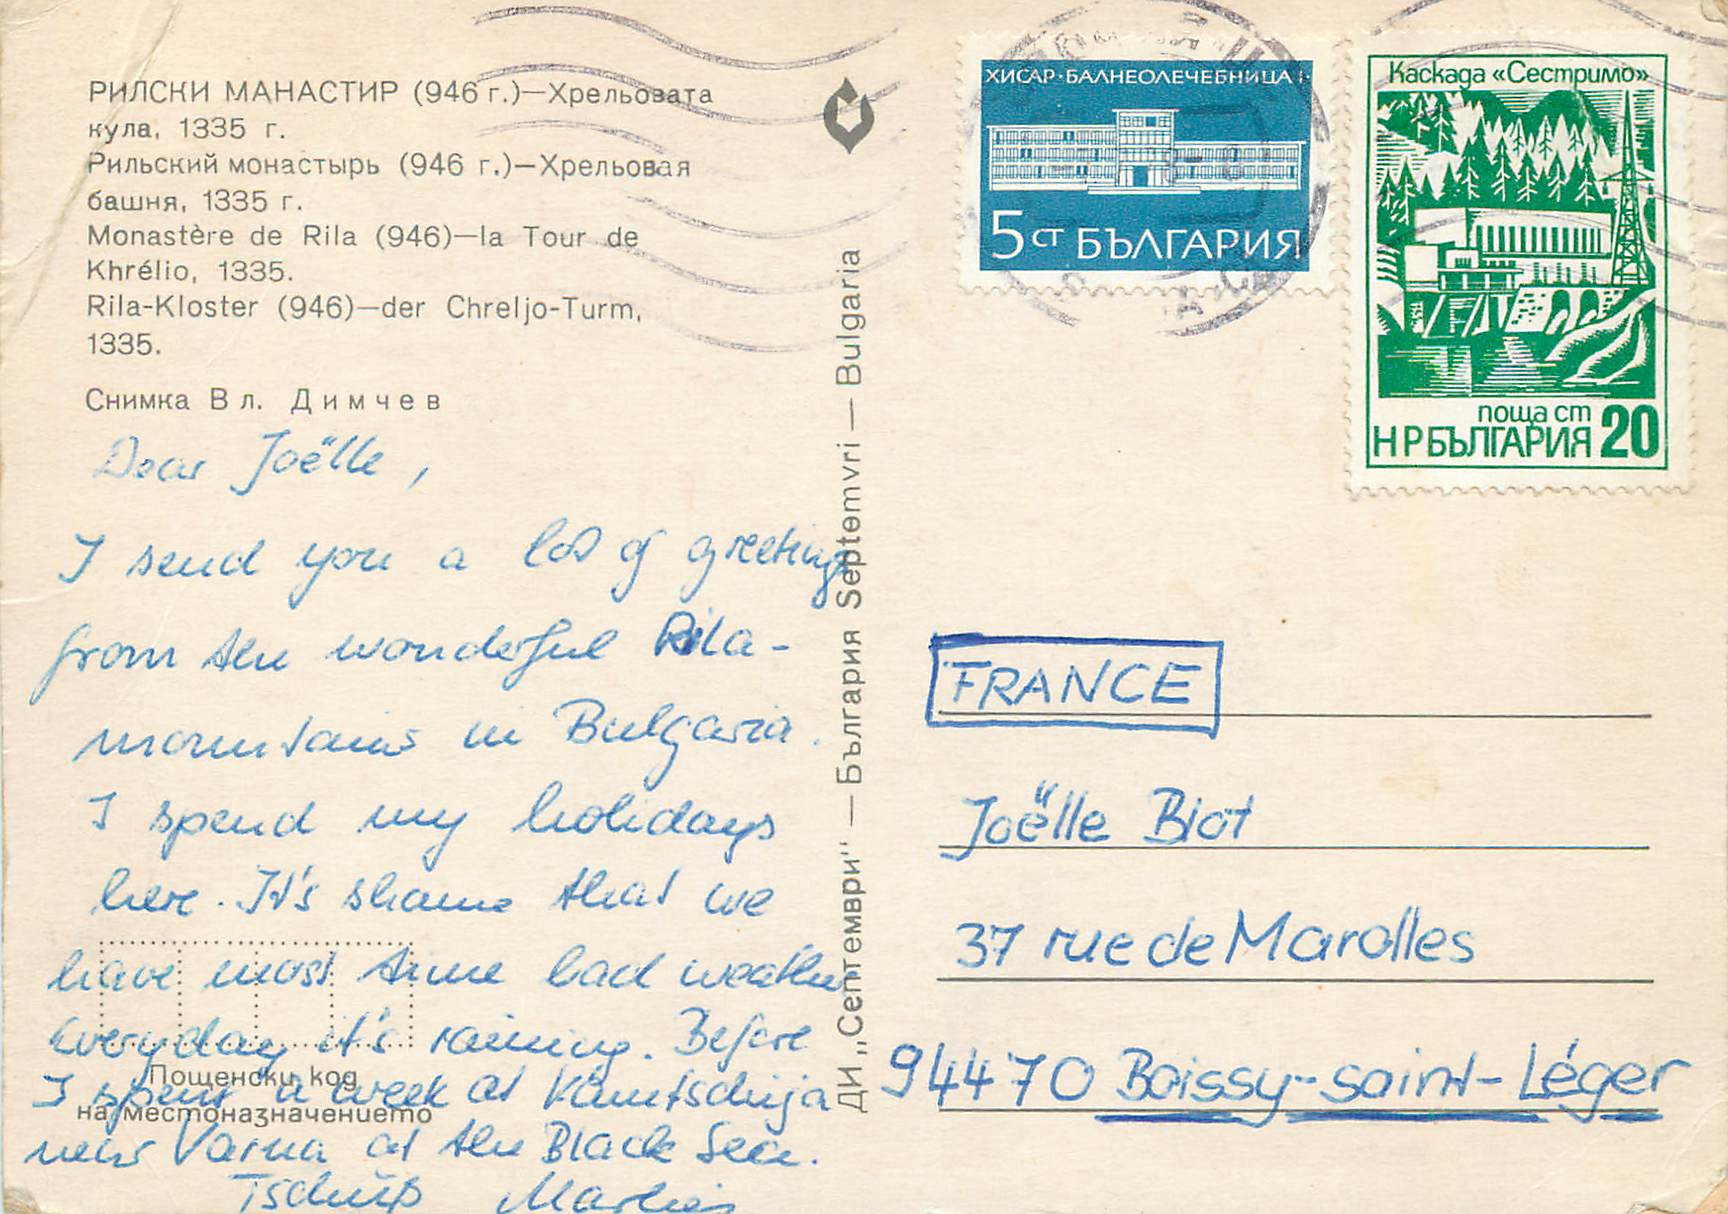 РИЛСКИ МАНАСТИР (946 г.)—Хрельовата
кула, 1335 г.
Рильский монастырь (946 г.)—Хрельовая
башня, 1335 г.
Monastère de Rila (946)—la Tour de
Khrélio, 1335.
Rila-Kloster (946)—der Chreljo-Turm,
1335.
Снимка Вл. Димчев
Dear Joëlle,
I send you a lot of greetings
from the wonderful Rila-
mountains in Bulgaria.
I spend my holidays
here. It's shame that we
have most time bad weather
Everyday it's raining. Before
I spent a week at Kamtschija
near Varna at the Black Sea.
Tschüß
Пощенски код
на местоназначението
ДИ „Септември" — България Septemvri — Bulgaria
ХИСАР·БАЛНЕОЛЕЧЕБНИЦА I·
5 СТ БЪЛГАРИЯ
Каскада «Сестримо»
поща ст
НРБЪЛГАРИЯ 20
FRANCE
Joëlle Biot
37 rue de Marolles
94470 Boissy-saint-Léger